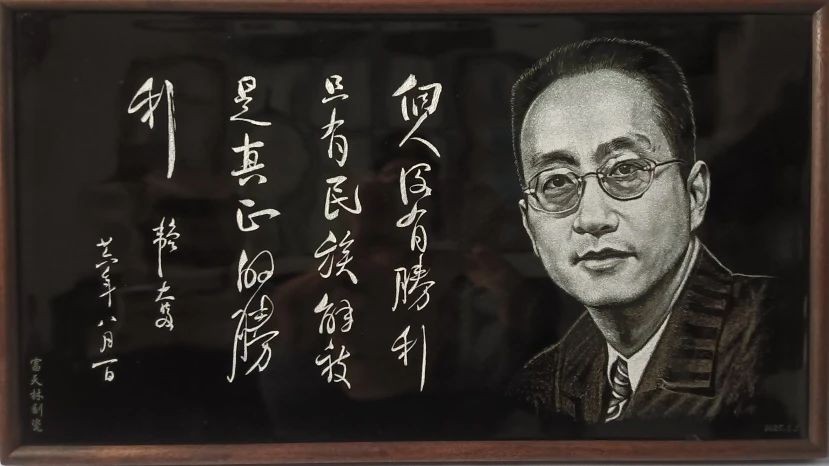 個人沒有勝利
只有民族解放
是真正的勝
利
韜奮
廿六年八月一日
富天林刻瓷